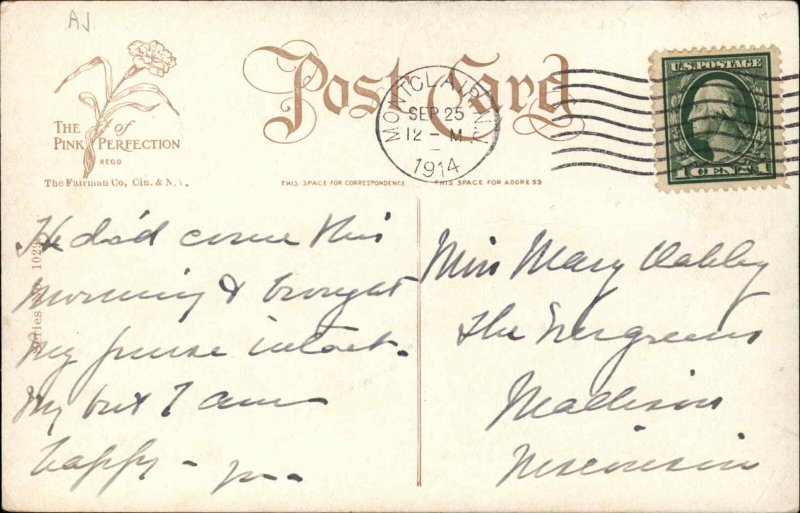 AJ
THE of
PINK PERFECTION
REGD
The Fairman Co, Cin. & N.Y.
Post Card
MONTCLAIR, N.J.
SEP 25
12 - M
1914
U.S. POSTAGE
1 CENT 1
THIS SPACE FOR CORRESPONDENCE
THIS SPACE FOR ADDRESS
Series No. 1029
He did come this
morning & brought
my purse intact.
My but I am
happy -
Miss Mary Oakley
The Evergreens
Madison
Wisconsin